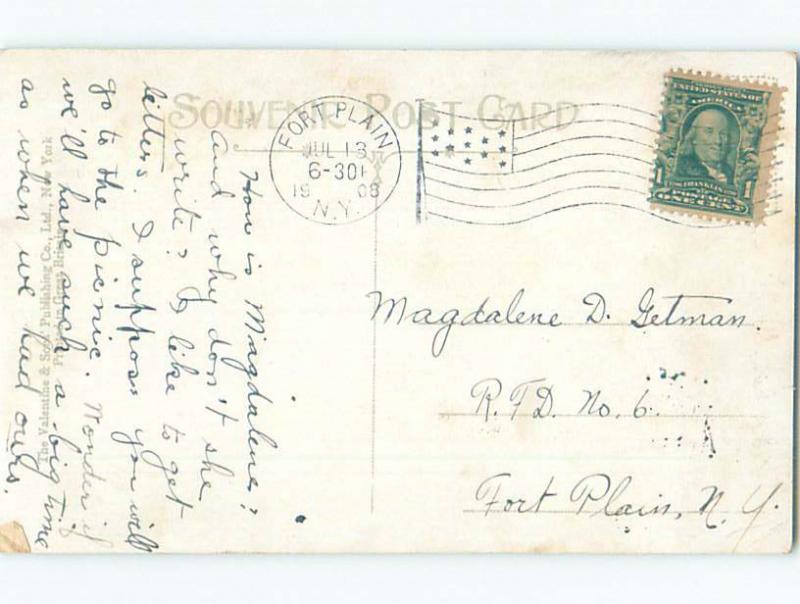 SOUVENIR POST CARD
FORT PLAIN
JUL 13
6-30
1908
N.Y.
UNITED STATES OF
AMERICA
FRANKLIN
1 1
POSTAGE
ONE CENT
Magdalene D. Getman.
R.F.D. No. 6.
Fort Plain, N.Y.
How is Magdalene?
and why don't she
write? I like to get
letters. I suppose you will
go to the picnic. Wonder if
we'll have such a big time
as when we had ours.
The Valentine & Sons Publishing Co., Ltd., New York
Printed in Great Britain